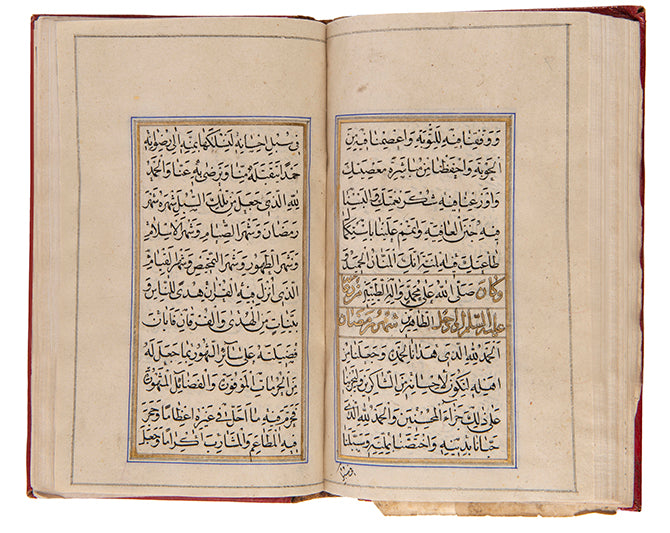 ووفقنا فيه للتوبة واعصمنا فيه من
الحوبة واحفظنا من مباشرة معصيتك
واوزعنا فيه شكر نعمتك والبسنا
فيه جنن العافية واتمم علينا باستكمال
طاعتك فيه المنة انك المنان الحميد و
وكان صلى الله على محمد واله الطيبين من دعائه
عليه السلام اذا دخل الطاهرين شهر رمضان
الحمد لله الذي هدانا لحمده وجعلنا من
اهله لنكون لاحسانه من الشاكرين وليجزينا
على ذلك جزاء المحسنين والحمد لله الذي
حبانا بدينه واختصنا بملته وسبلنا
في سبل احسانه لنسلكها بمنه الى رضوانه
حمدا يتقبله منا ويرضى به عنا والحمد
لله الذي جعل من تلك السبل شهره شهر
رمضان وشهر الصيام وشهر الاسلام
وشهر الطهور وشهر التمحيص وشهر القيام
الذي انزل فيه القرآن هدى للناس و
بينات من الهدى والفرقان فابان
فضيلته على سائر الشهور بما جعل له
من الحرمات الموفورة والفضائل المشهورة
فحرم فيه ما احل في غيره اعظاما وحجر
فيه المطاعم والمشارب اكراما وجعل